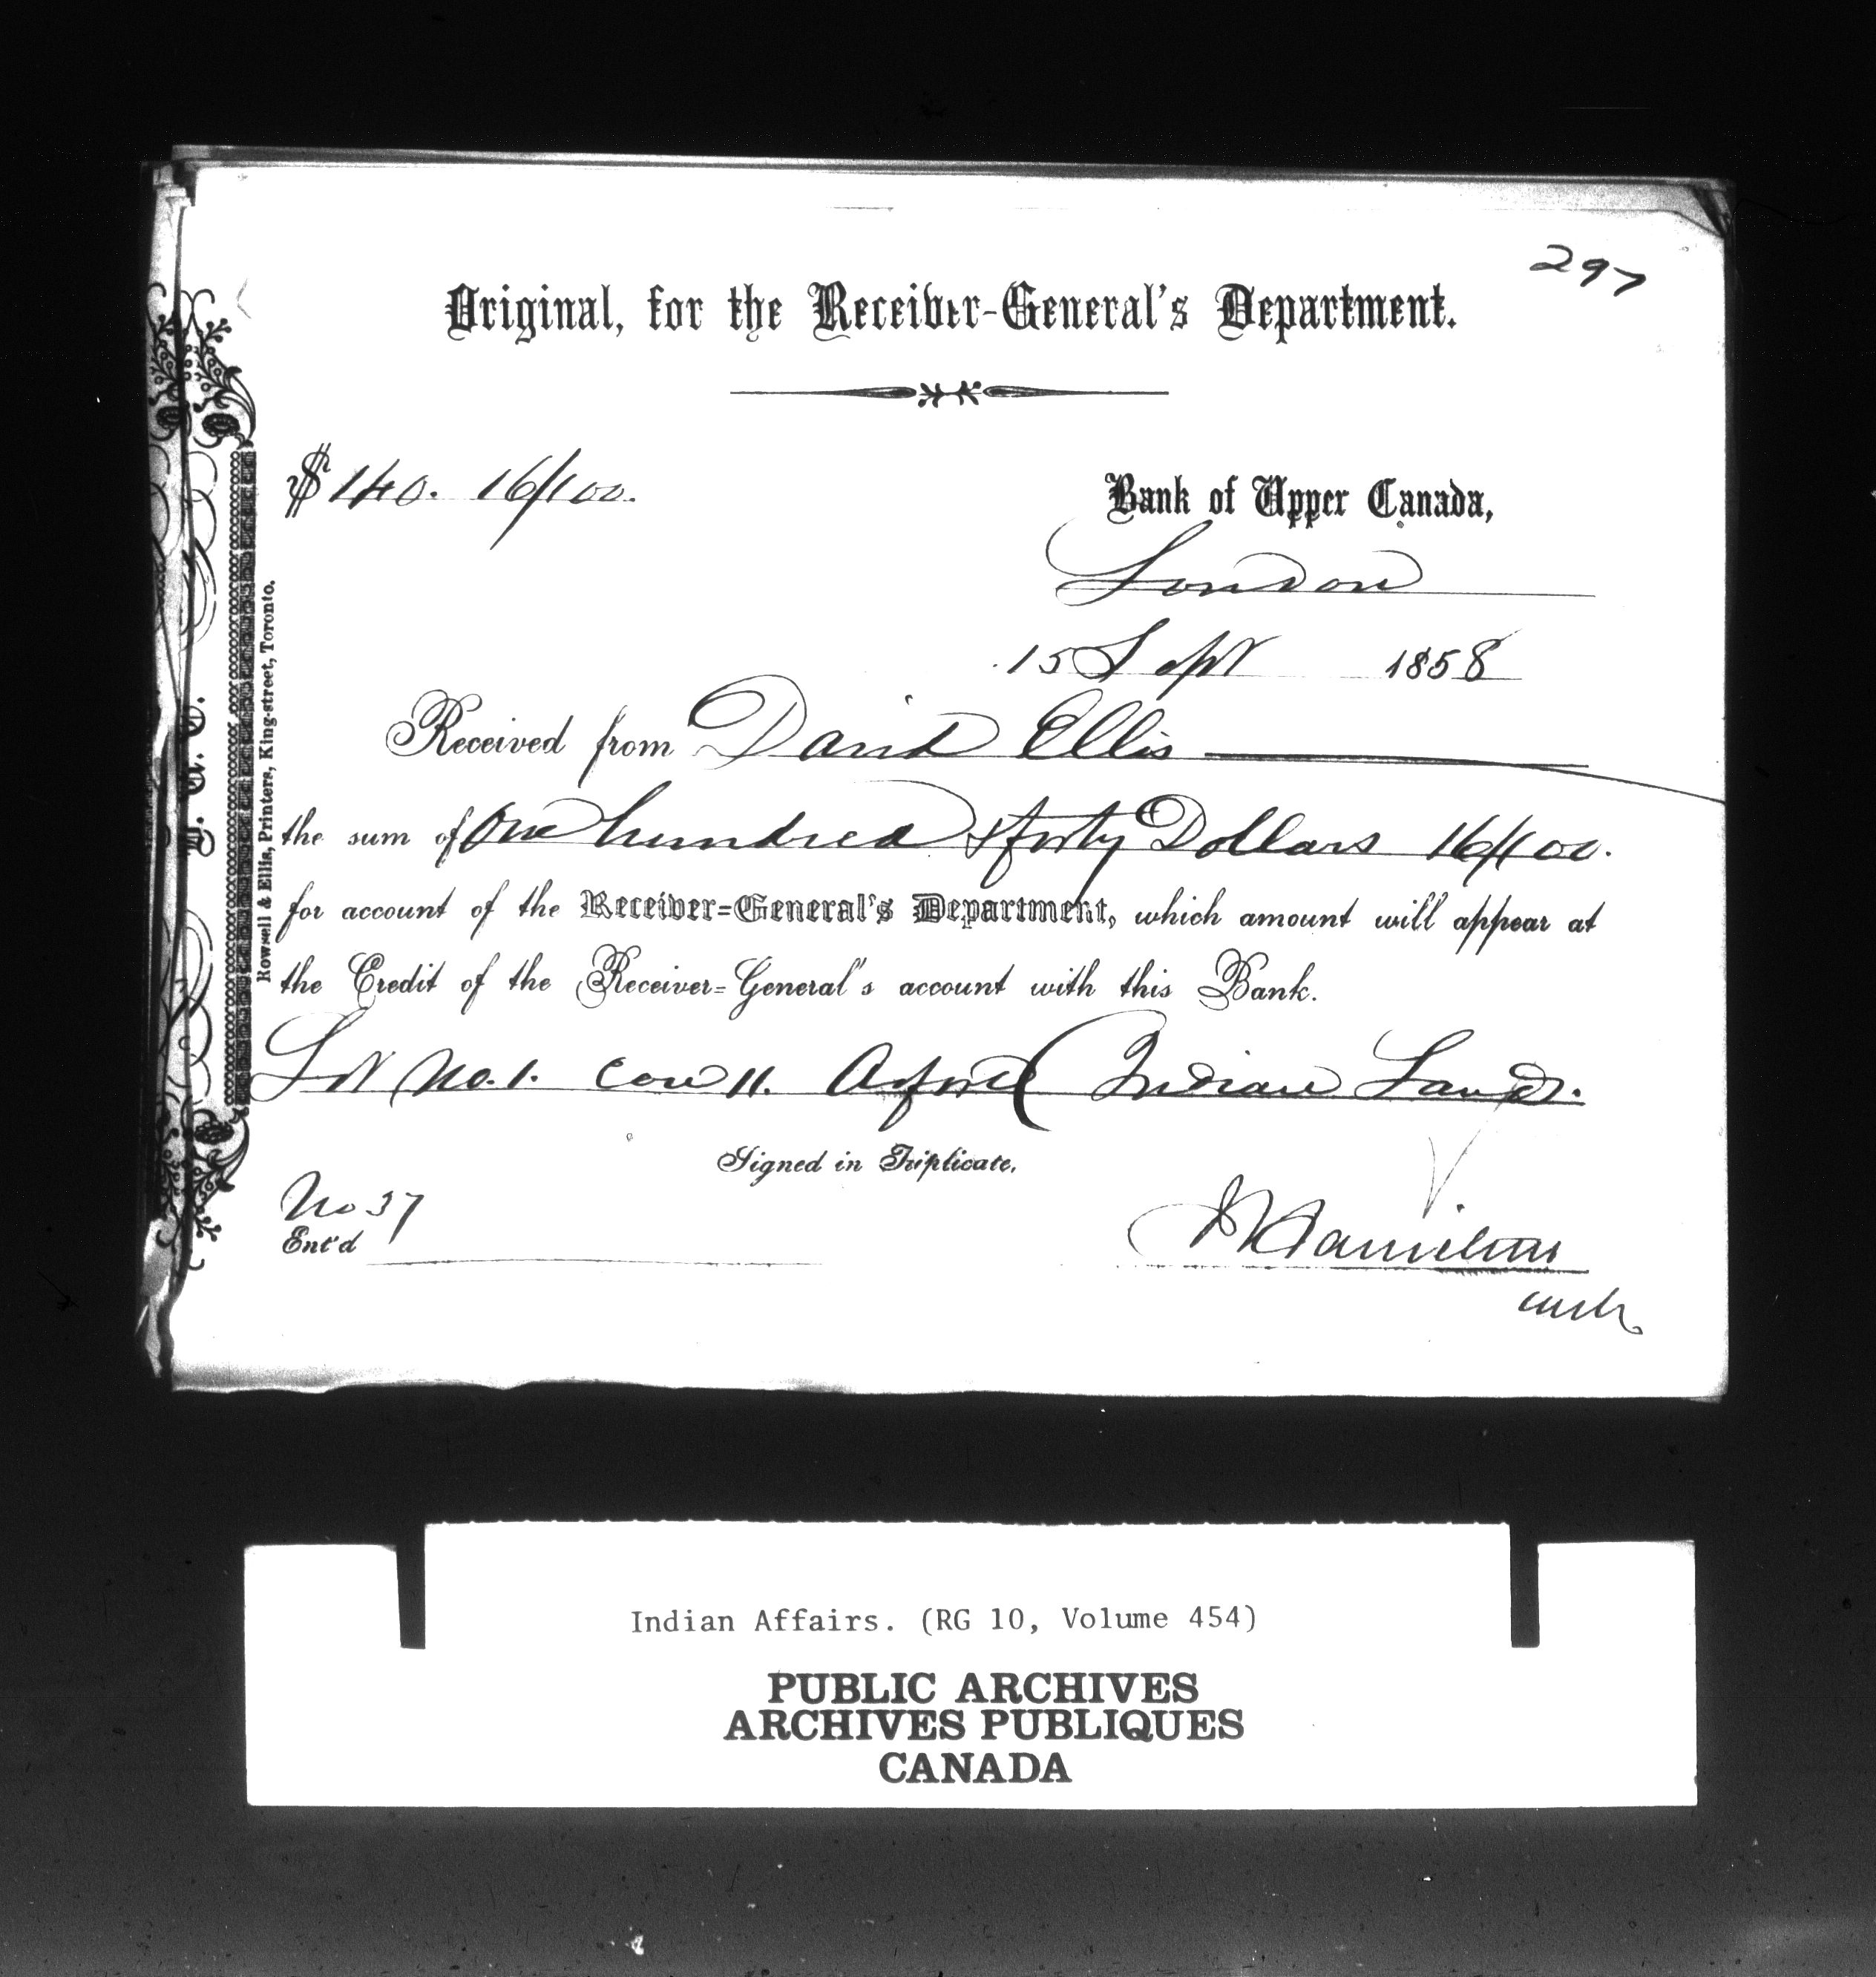 297
Original, for the Receiver-General's Department.
$ 140. 16/100.
Bank of Upper Canada,
London
15 Sept 1858
Received from David Ellis
the sum of One hundred & forty Dollars 16/100.
for account of the Receiver=General's Department, which amount will appear at
the Credit of the Receiver=General's account with this Bank.
Lot No. 1. Con 11. Indian Lands.
Signed in Triplicate.
No 37
Ent'd
Hamilton
Rowsell & Ellis, Printers, King-street, Toronto.
Indian Affairs. (RG 10, Volume 454)
PUBLIC ARCHIVES
ARCHIVES PUBLIQUES
CANADA